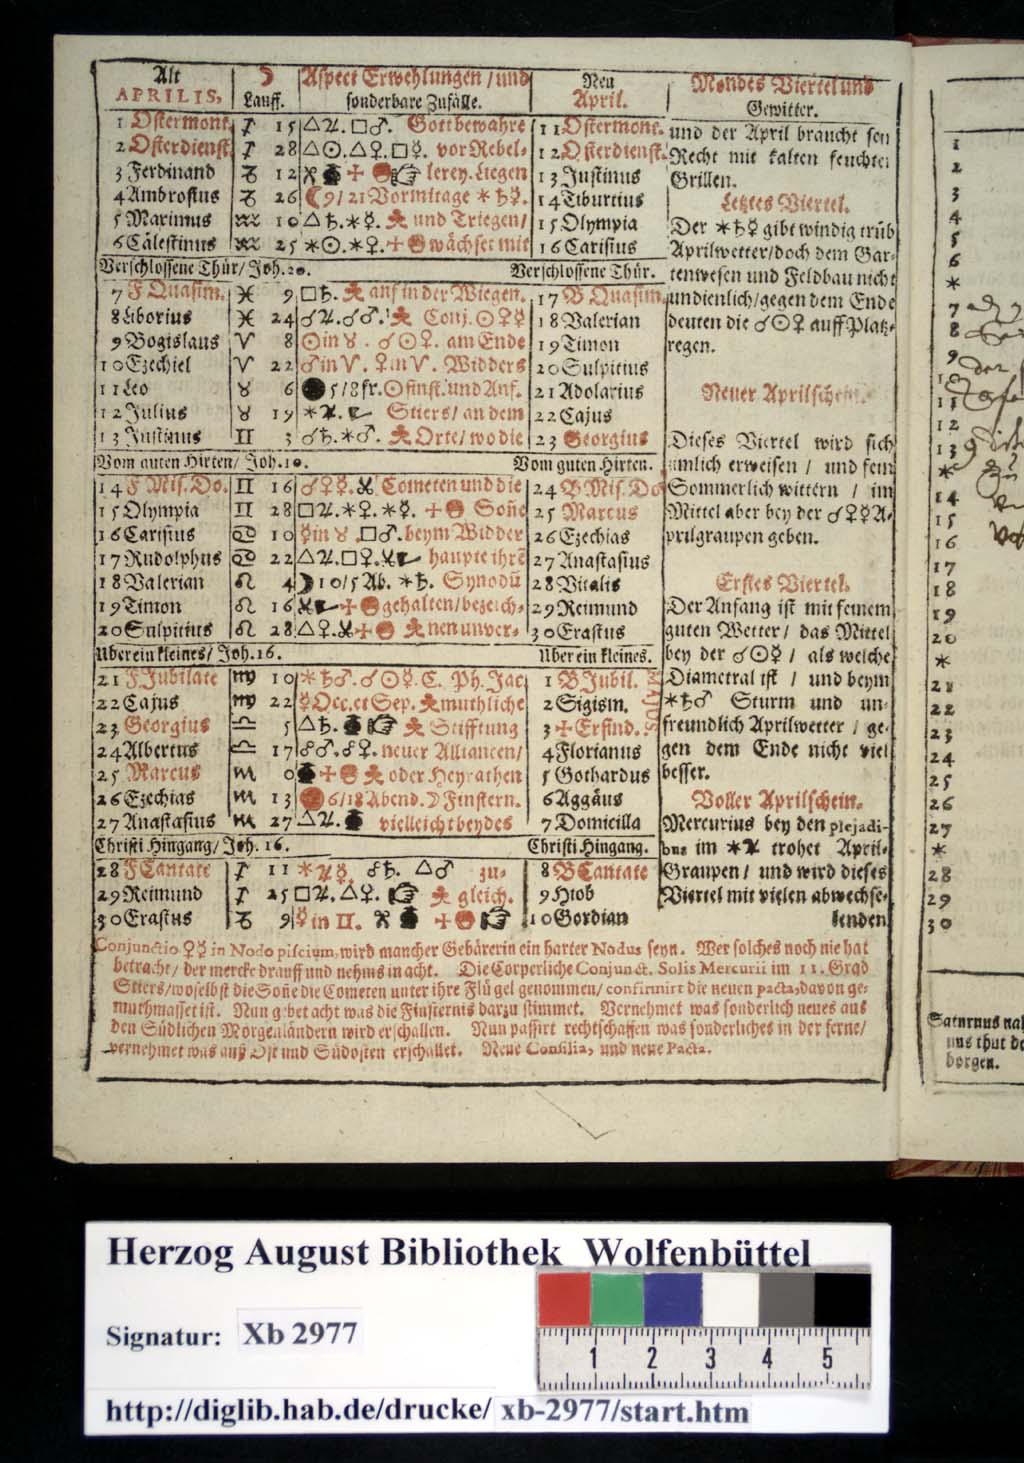 Alt APRILIS, ☽ Lauff. Aspect Erwehlungen / und sonderbare Zufälle. Neu April. Mondes Viertel und Gewitter.
1 Ostermont. ♐ 15 △♃. □♂. Gott bewahre 11 Ostermont.
2 Osterdienst. ♐ 28 △☉. △♀. □☿. vor Rebel- 12 Osterdienst.
3 Ferdinand ♑ 12 lerey. Liegen 13 Justinus
4 Ambrosius ♑ 26 ☾ 9/21 Vormitage ✶♄☿. 14 Tiburtius
5 Maximus ♒ 10 △♄. ✶☿. und Triegen/ 15 Olympia
6 Cälestinus ♒ 25 ✶☉. ✶♀. wächset mit 16 Carisius
Verschlossene Thür/ Joh. 20. Verschlossene Thür.
7 F Quasim. ♓ 9 □♄. auf in der Wiegen. 17 B Quasim.
8 Liborius ♓ 24 ☌♃. ☌♂. Conj. ☉♀☿ 18 Valerian
9 Bogislaus ♈ 8 ☉ in ♉. ☌☉♀. am Ende 19 Timon
10 Ezechiel ♈ 22 ♂ in ♈. ♀ in ♈. Widders 20 Sulpitius
11 Leo ♉ 6 5/8 fr. ☉ finst. und Anf. 21 Adolarius
12 Julius ♉ 19 ✶♃. Stiers/ an dem 22 Cajus
13 Justinus ♊ 3 ☌♄. ✶♂. Orte/ wo die 23 Georgius
Vom guten Hirten/ Joh. 10. Vom guten Hirten.
14 F Mis. Do. ♊ 16 ☌♀☿. Cometen und die 24 B Mis. Do
15 Olympia ♊ 28 □♃. ✶♀. ✶☿. Soñe 25 Marcus
16 Carisius ♋ 10 ☿ in ♉. □♂. beym Widder 26 Ezechias
17 Rudolphus ♋ 22 △♃. □♀. haupte ihrẽ 27 Anastasius
18 Valerian ♌ 4 ☽ 10/5 Ab. ✶♄. Synodũ 28 Vitalis
19 Timon ♌ 16 gehalten/ bezeich- 29 Reimund
20 Sulpitius ♌ 28 △♀. nen unver- 30 Erastus
Uber ein kleines/ Joh. 16. Uber ein kleines.
21 F Jubilate ♍ 10 ✶♄♂. ☌☉☿. C. Ph. Jac 1 B Jubil.
MAJUS
22 Cajus ♍ 22 ☿ Occ. et Sep. muthliche 2 Sigism.
23 Georgius ♎ 5 △♄. Stifftung 3 Erfind.
24 Albertus ♎ 17 ☍♂. ☍♀. neuer Alliancen/ 4 Florianus
25 Marcus ♏ 0 oder Heyrathen 5 Gothardus
26 Ezechias ♏ 13 6/18 Abend. ☽ Finstern. 6 Aggäus
27 Anastasius ♏ 27 △♃. vielleicht beydes 7 Domicilla
Christi Hingang/ Joh. 16. Christi Hingang.
28 F Cantate ♐ 11 ✶♃☿. ☍♄. △♂ zu- 8 B Cantate
29 Reimund ♐ 25 □♃. △♀. gleich. 9 Hiob
30 Erastus ♑ 9 ☿ in ♊. 10 Gordian
und der April braucht sein
Recht mit kalten feuchten
Grillen.
Letztes Viertel.
Der ✶♄☿ gibt windig trüb
Aprilwetter/ doch dem Gar-
tenwesen und Feldbau nicht
undienlich/ gegen dem Ende
deuten die ☌☉♀ auff Platz-
regen.
Neuer Aprilschein.
Dieses Viertel wird sich
zimlich erweisen / und fein
Sommerlich wittern / im
Mittel aber bey der ☌♀☿ A-
prilgraupen geben.
Erstes Viertel.
Der Anfang ist mit feinem
guten Wetter / das Mittel
bey der ☌☉☿ / als welche
Diametral ist / und beym
✶♄♂ Sturm und un-
freundlich Aprilwetter / ge-
gen dem Ende nicht viel
besser.
Voller Aprilschein.
Mercurius bey den plejadi-
bus im ✶♃ trohet April-
Graupen / und wird dieses
Viertel mit vielen abwechse-
lenden
Conjunctio ♀☿ in Nodo piscium, wird mancher Gebärerin ein harter Nodus seyn. Wer solches noch nie hat
betracht/ der mercke drauff und nehms in acht. Die Cörperliche Conjunct. Solis Mercurii im 11. Grad
Stiers/ woselbst die Soñe die Cometen unter ihre Flügel genommen/ confirmirt die neuen pacta, davon ge-
muthmasset ist. Nun gebet acht was die Finsternis darzu stimmet. Vernehmet was sonderlich neues aus
den Südlichen Morgenländern wird erschallen. Nun passirt rechtschaffen was sonderliches in der ferne/
vernehmet was auß Ost und Südosten erschallet. Neue Consilia, und neue Pacta.
1
2
3
4
5
6
✶
7
8
9
10
11
12
13
✶
14
15
16
17
18
19
20
✶
21
22
23
24
25
26
27
✶
28
29
30
Saturnus
borgen.
Herzog August Bibliothek Wolfenbüttel
Signatur: Xb 2977
1 2 3 4 5
http://diglib.hab.de/drucke/ xb-2977/start.htm